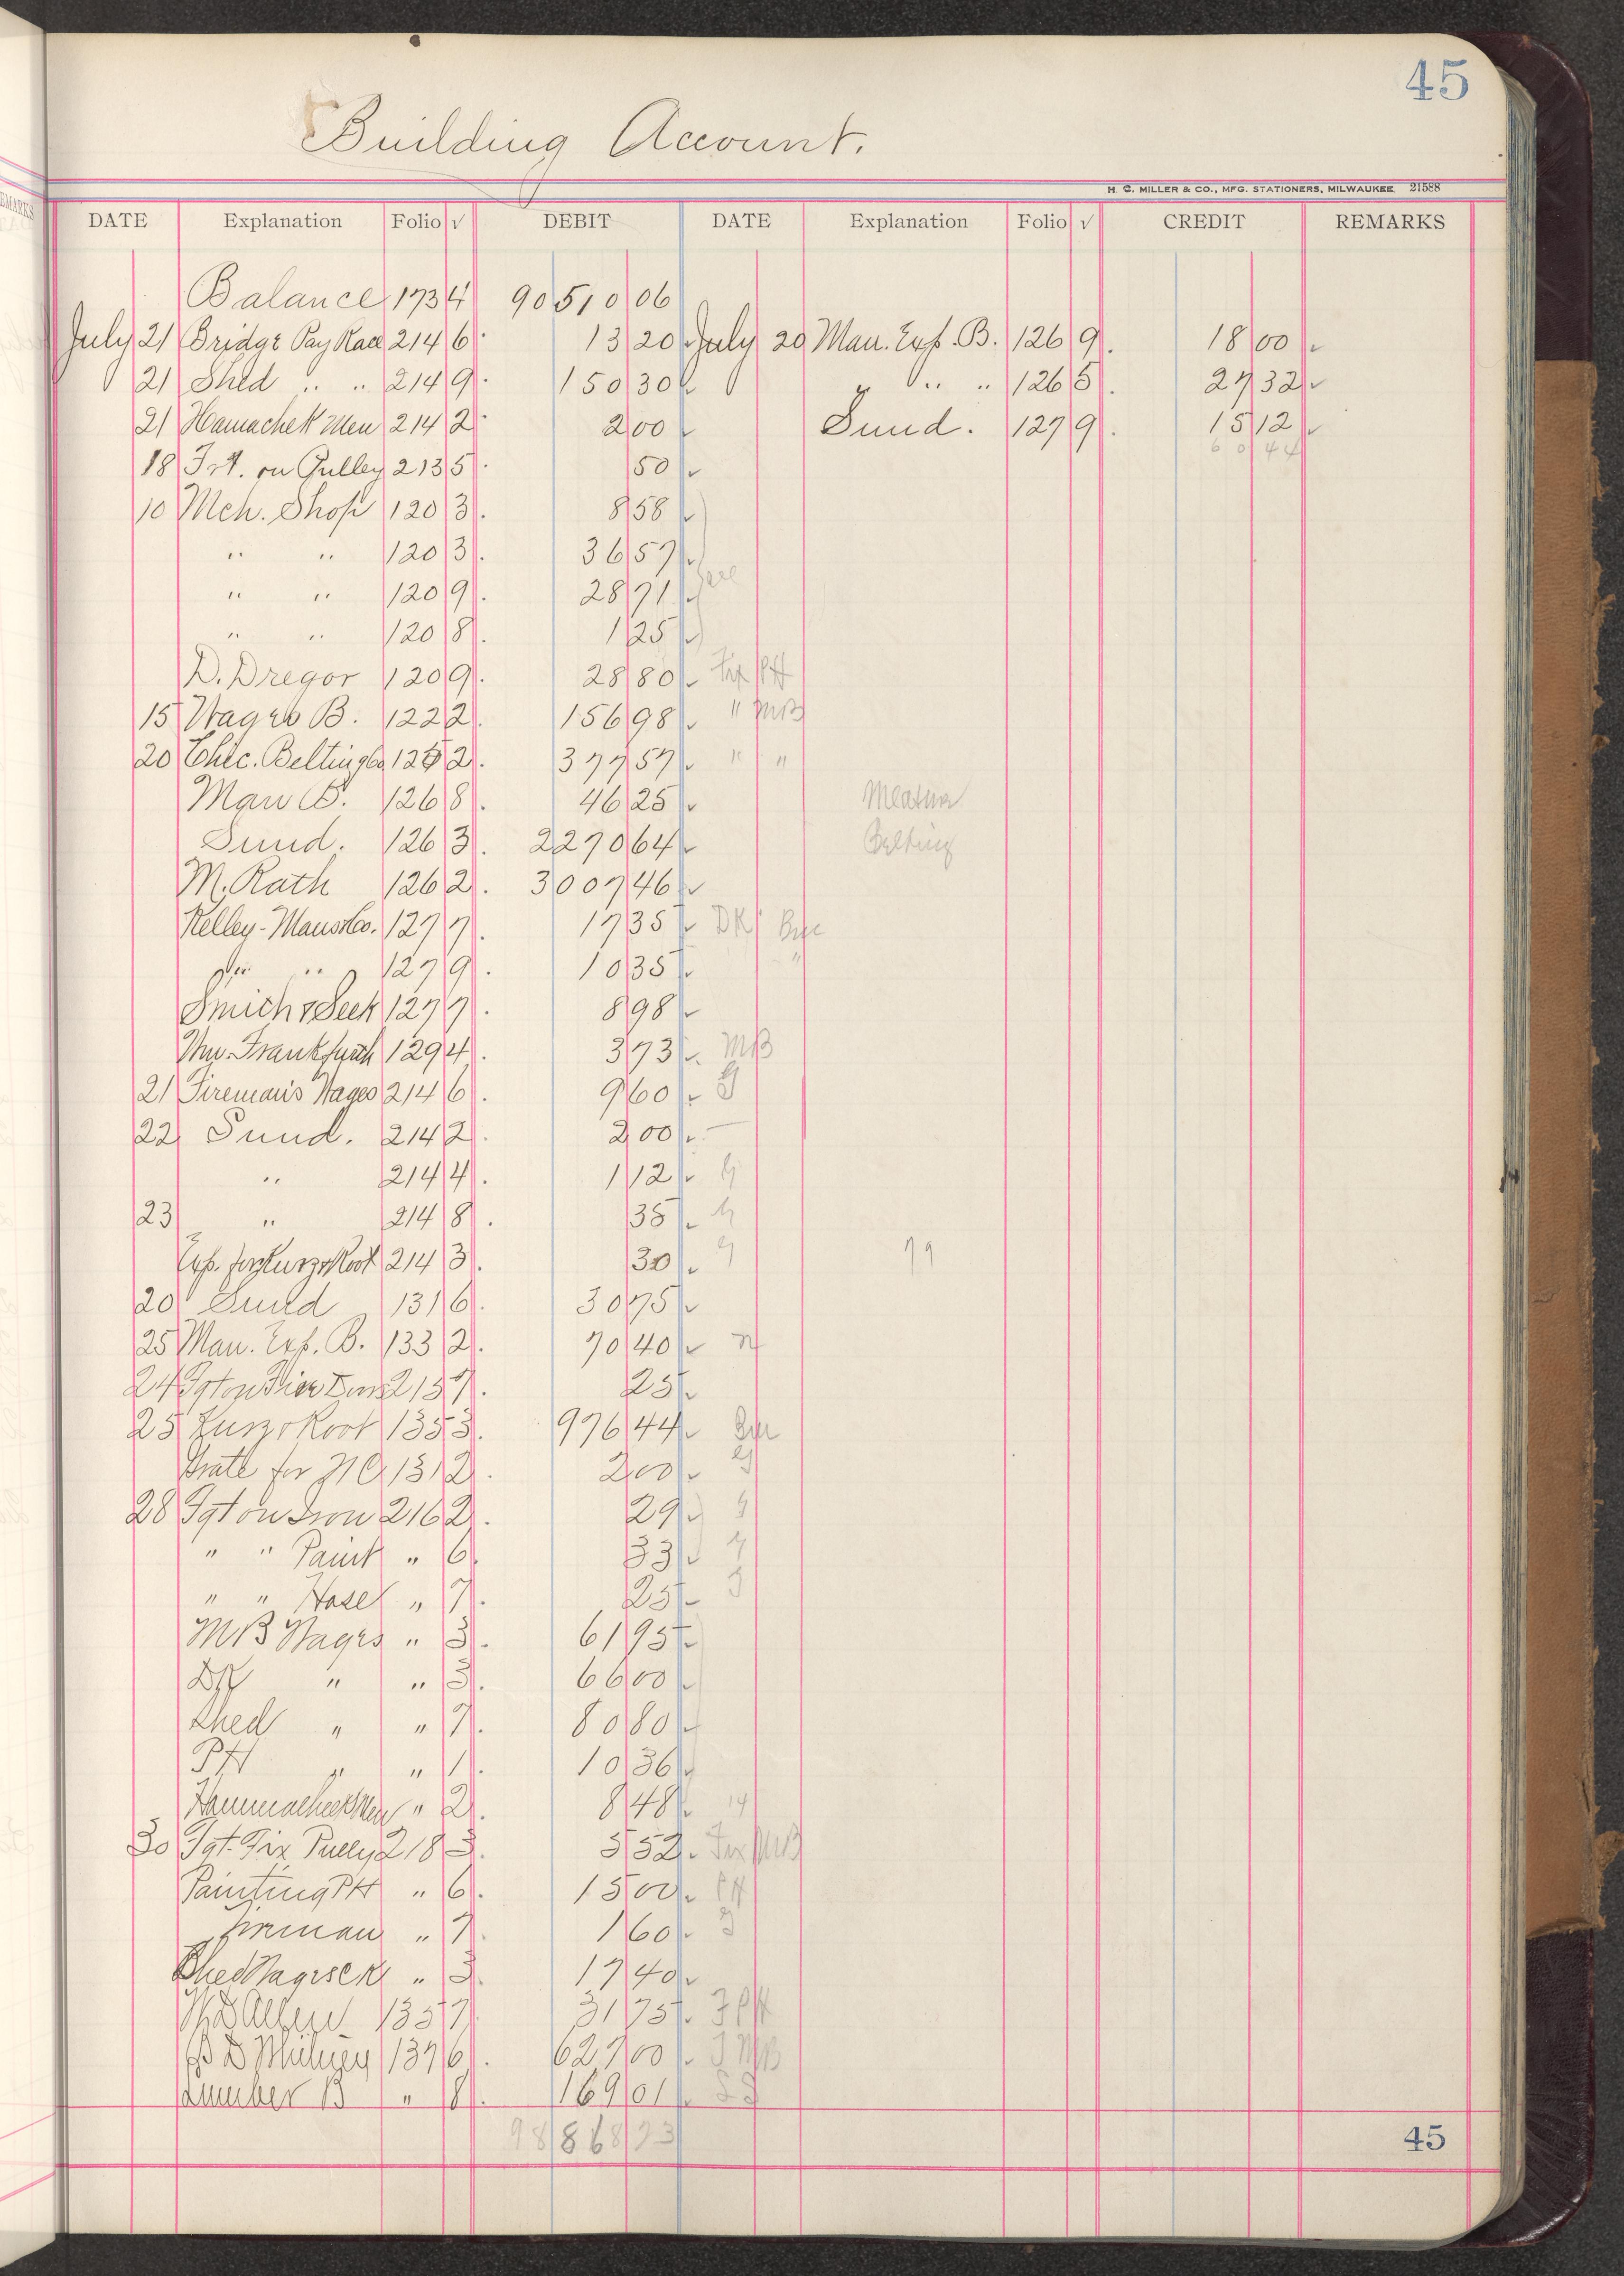 45
Building Account.
H. C. MILLER & CO., MFG. STATIONERS, MILWAUKEE 21588
DATE Explanation Folio √ DEBIT DATE Explanation Folio √ CREDIT REMARKS
Balance 173 4 90510 06
July 21 Bridge Pay Race 214 6 13 20 July 20 Man. Exp. B. 126 9 18 00
21 Shed " " 214 9 150 30 " " 126 5 27 32
21 Hamachek Men 214 2 2 00 Sund. 127 9 15 12
60 44
18 Frt. on Pulley 213 5 50
10 Mch. Shop 120 3 8 58
" " 120 3 36 57
" " 120 9 28 71
" " 120 8 1 25
D. Dregor 120 9 28 80 PH
15 Wages B. 122 2 156 98 " MB
20 Chic. Belting Co 125 2 377 57 " "
Man B. 126 8 46 25
Sund. 126 3 2270 64 Belting
M. Rath 126 2 3007 46
Kelley-Maus & Co. 127 7 17 35 DK
" " 127 9 10 35 "
Smith & Seek 127 7 8 98
Wm. Frankfurth 129 4 3 73 MB
21 Fireman's Wages 214 6 9 60 G
22 Sund. 214 2 2 00
" 214 4 1 12 G
23 " 214 8 35
Exp. for Kurz & Root 214 3 30 79
20 Sund 131 6 30 75
25 Man. Exp. B. 133 2 70 40
24 Fgt on 215 7 25
25 Kurz & Root 135 3 976 44
Grate for 131 2 2 00 G
28 Fgt on Iron 216 2 29
" " Paint " 6 33
" " Hose " 7 25
MB Wages " 3 61 95
DK " " 3 66 00
Shed " " 7 80 80
PH " " 1 10 36
Hammacheck Men " 2 8 48
30 Fgt. Fix Pully 218 3 5 52 Fix MB
Painting PH " 6 15 00 PH
Fireman " 7 1 60
Shed Wages CK " 3 17 40
Allen 135 7 31 75 PH
137 6 627 00 MB
Lumber B " 8 169 01
98868 73
45